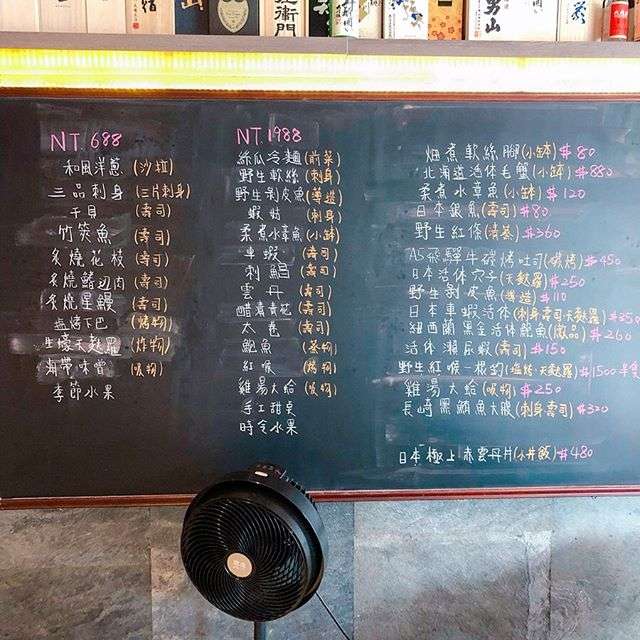 NT. 688
和風洋蔥 (沙拉)
三品刺身 (三片刺身)
干貝 (壽司)
竹筴魚 (壽司)
炙燒花枝 (壽司)
炙燒鰭边肉 (壽司)
炙燒星鰻 (壽司)
塩烤下巴 (烤物)
生蠔天麩羅 (炸物)
海帶味噌 (吸物)
季節水果
NT. 1988
絲瓜冷麵 (前菜)
野生軟絲 (刺身)
野生剝皮魚 (薄造)
蝦蛄 (刺身)
柔煮水章魚 (小缽)
車蝦 (壽司)
刺鯧 (壽司)
雲丹 (壽司)
醋漬黃花 (壽司)
太卷 (壽司)
鮑魚 (蒸物)
紅喉 (烤物)
雞湯大蛤 (吸物)
手工甜点
時令水果
畑煮軟絲腳 (小缽) $80
北海道活体毛蟹 (小缽) $880
柔煮水章魚 (小缽) $120
日本銀魚 (壽司) $80
野生紅條 (清蒸) $360
A5飛驒牛磅烤吐司 (碳烤) $450
日本活体穴子 (天麩羅) $250
野生剝皮魚 (薄造) $110
日本車蝦活体 (刺身壽司天麩羅) $250
紐西蘭黑金活体鮑魚 (微品) $260
活体瀨尿蝦 (壽司) $150
野生紅喉一夜釣 (塩烤.天麩羅) $1500
雞湯大蛤 (吸物) $250
長崎黑鮪魚大腹 (刺身壽司) $320
日本極上赤雲丹片 (小丼飯) $480